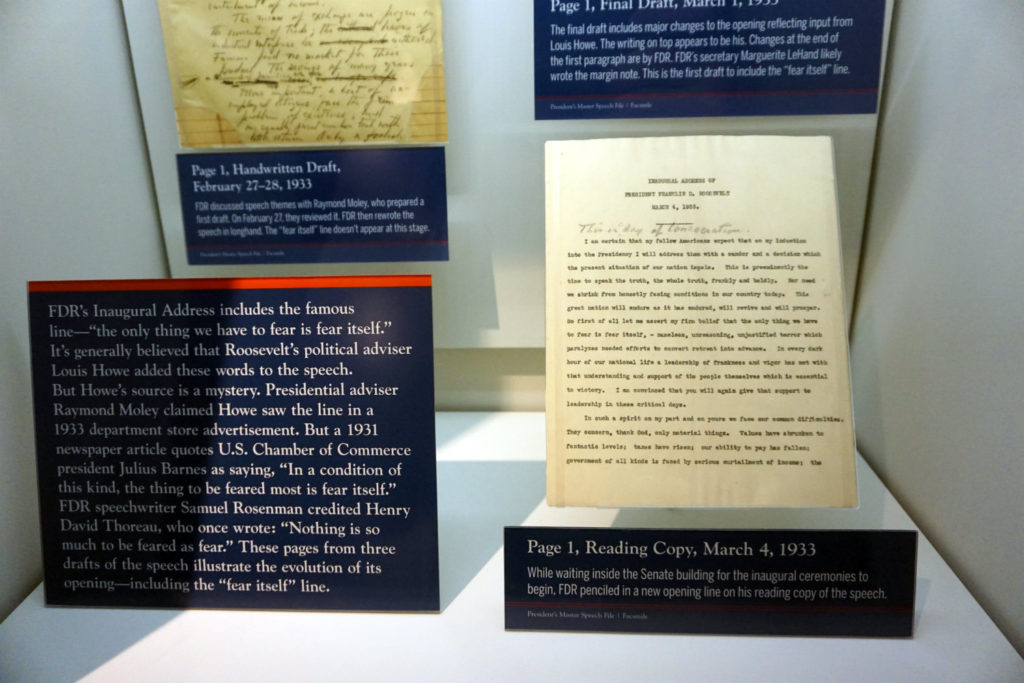 The means of exchange are frozen in
the currents of trade; the
industrial enterprise
Farmers find no market for their
produce. The savings of many years
More important, a host of un-
employed citizens face the grim
problem of existence, and
an equally great number toil with
little return. Only a foolish
Page 1, Handwritten Draft,
February 27–28, 1933
FDR discussed speech themes with Raymond Moley, who prepared a
first draft. On February 27, they reviewed it. FDR then rewrote the
speech in longhand. The "fear itself" line doesn't appear at this stage.
President's Master Speech File | Facsimile
Page 1, Final Draft, March 1, 1933
The final draft includes major changes to the opening reflecting input from
Louis Howe. The writing on top appears to be his. Changes at the end of
the first paragraph are by FDR. FDR's secretary Marguerite LeHand likely
wrote the margin note. This is the first draft to include the "fear itself" line.
President's Master Speech File | Facsimile
FDR's Inaugural Address includes the famous
line—"the only thing we have to fear is fear itself."
It's generally believed that Roosevelt's political adviser
Louis Howe added these words to the speech.
But Howe's source is a mystery. Presidential adviser
Raymond Moley claimed Howe saw the line in a
1933 department store advertisement. But a 1931
newspaper article quotes U.S. Chamber of Commerce
president Julius Barnes as saying, "In a condition of
this kind, the thing to be feared most is fear itself."
FDR speechwriter Samuel Rosenman credited Henry
David Thoreau, who once wrote: "Nothing is so
much to be feared as fear." These pages from three
drafts of the speech illustrate the evolution of its
opening—including the "fear itself" line.
INAUGURAL ADDRESS OF
PRESIDENT FRANKLIN D. ROOSEVELT
MARCH 4, 1933.
This is a day of consecration.
I am certain that my fellow Americans expect that on my induction
into the Presidency I will address them with a candor and a decision which
the present situation of our nation impels. This is preeminently the
time to speak the truth, the whole truth, frankly and boldly. Nor need
we shrink from honestly facing conditions in our country today. This
great nation will endure as it has endured, will revive and will prosper.
So first of all let me assert my firm belief that the only thing we have
to fear is fear itself, - nameless, unreasoning, unjustified terror which
paralyzes needed efforts to convert retreat into advance. In every dark
hour of our national life a leadership of frankness and vigor has met with
that understanding and support of the people themselves which is essential
to victory. I am convinced that you will again give that support to
leadership in these critical days.
In such a spirit on my part and on yours we face our common difficulties.
They concern, thank God, only material things. Values have shrunken to
fantastic levels; taxes have risen; our ability to pay has fallen;
government of all kinds is faced by serious curtailment of income; the
Page 1, Reading Copy, March 4, 1933
While waiting inside the Senate building for the inaugural ceremonies to
begin, FDR penciled in a new opening line on his reading copy of the speech.
President's Master Speech File | Facsimile